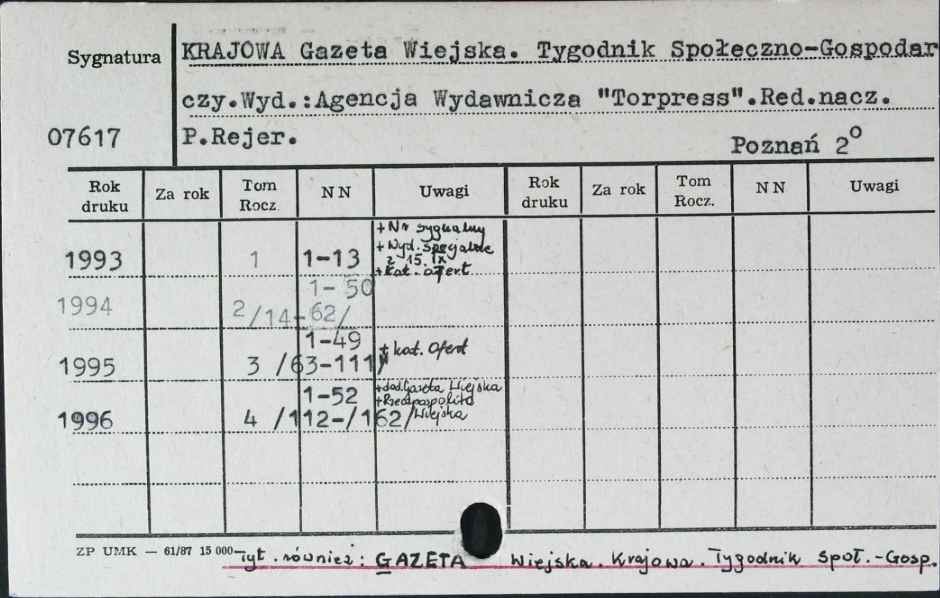 Sygnatura
KRAJOWA Gazeta Wiejska. Tygodnik Społeczno-Gospodar
czy.Wyd.:Agencja Wydawnicza "Torpress".Red.nacz.
07617 P.Rejer. Poznań 2°
Rok druku Za rok Tom Rocz. NN Uwagi Rok druku Za rok Tom Rocz. NN Uwagi
+ Nr sygnalny
+ Wyd. Specjalne
z 15.IX
1993 1 1-13 + kat. ofert
1-50
1994 2/14-62/
1-49
1995 3 /63-111/ + kat. Ofert
1-52 + dod. Gazeta Wiejska
+ Rzeczpospolita
1996 4 /112-/162/ Wiejska
ZP UMK — 61/87 15 000—
Tyt. również: GAZETA Wiejska. Krajowa. Tygodnik Społ.-Gosp.